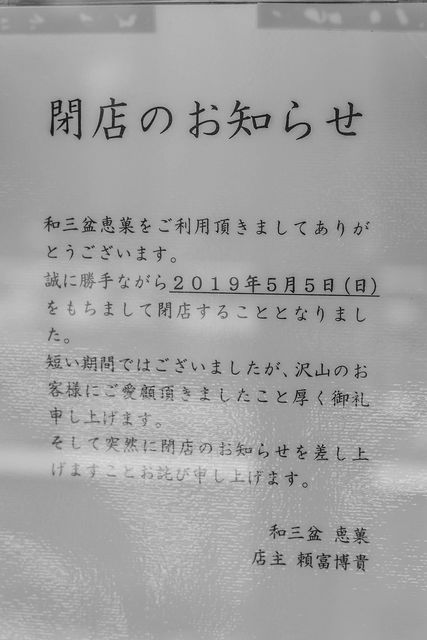 閉店のお知らせ
和三盆恵菓をご利用頂きましてありが
とうございます。
誠に勝手ながら２０１９年５月５日(日)
をもちまして閉店することとなりまし
た。
短い期間ではございましたが、沢山のお
客様にご愛顧頂きましたこと厚く御礼
申し上げます。
そして突然に閉店のお知らせを差し上
げますことお詫び申し上げます。
和三盆 恵菓
店主 頼富博貴